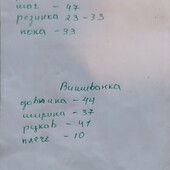 шаг - 47
резинка 23-33
пока - 33
Вишиванка
довжина - 44
ширина - 37
рукав - 41
плече - 10